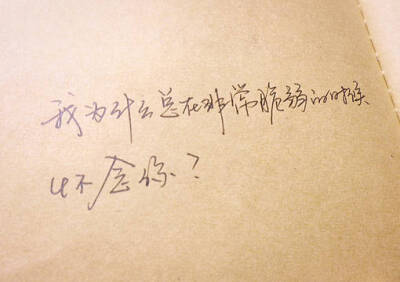 我为什么总在非常脆弱的时候
怀念你？